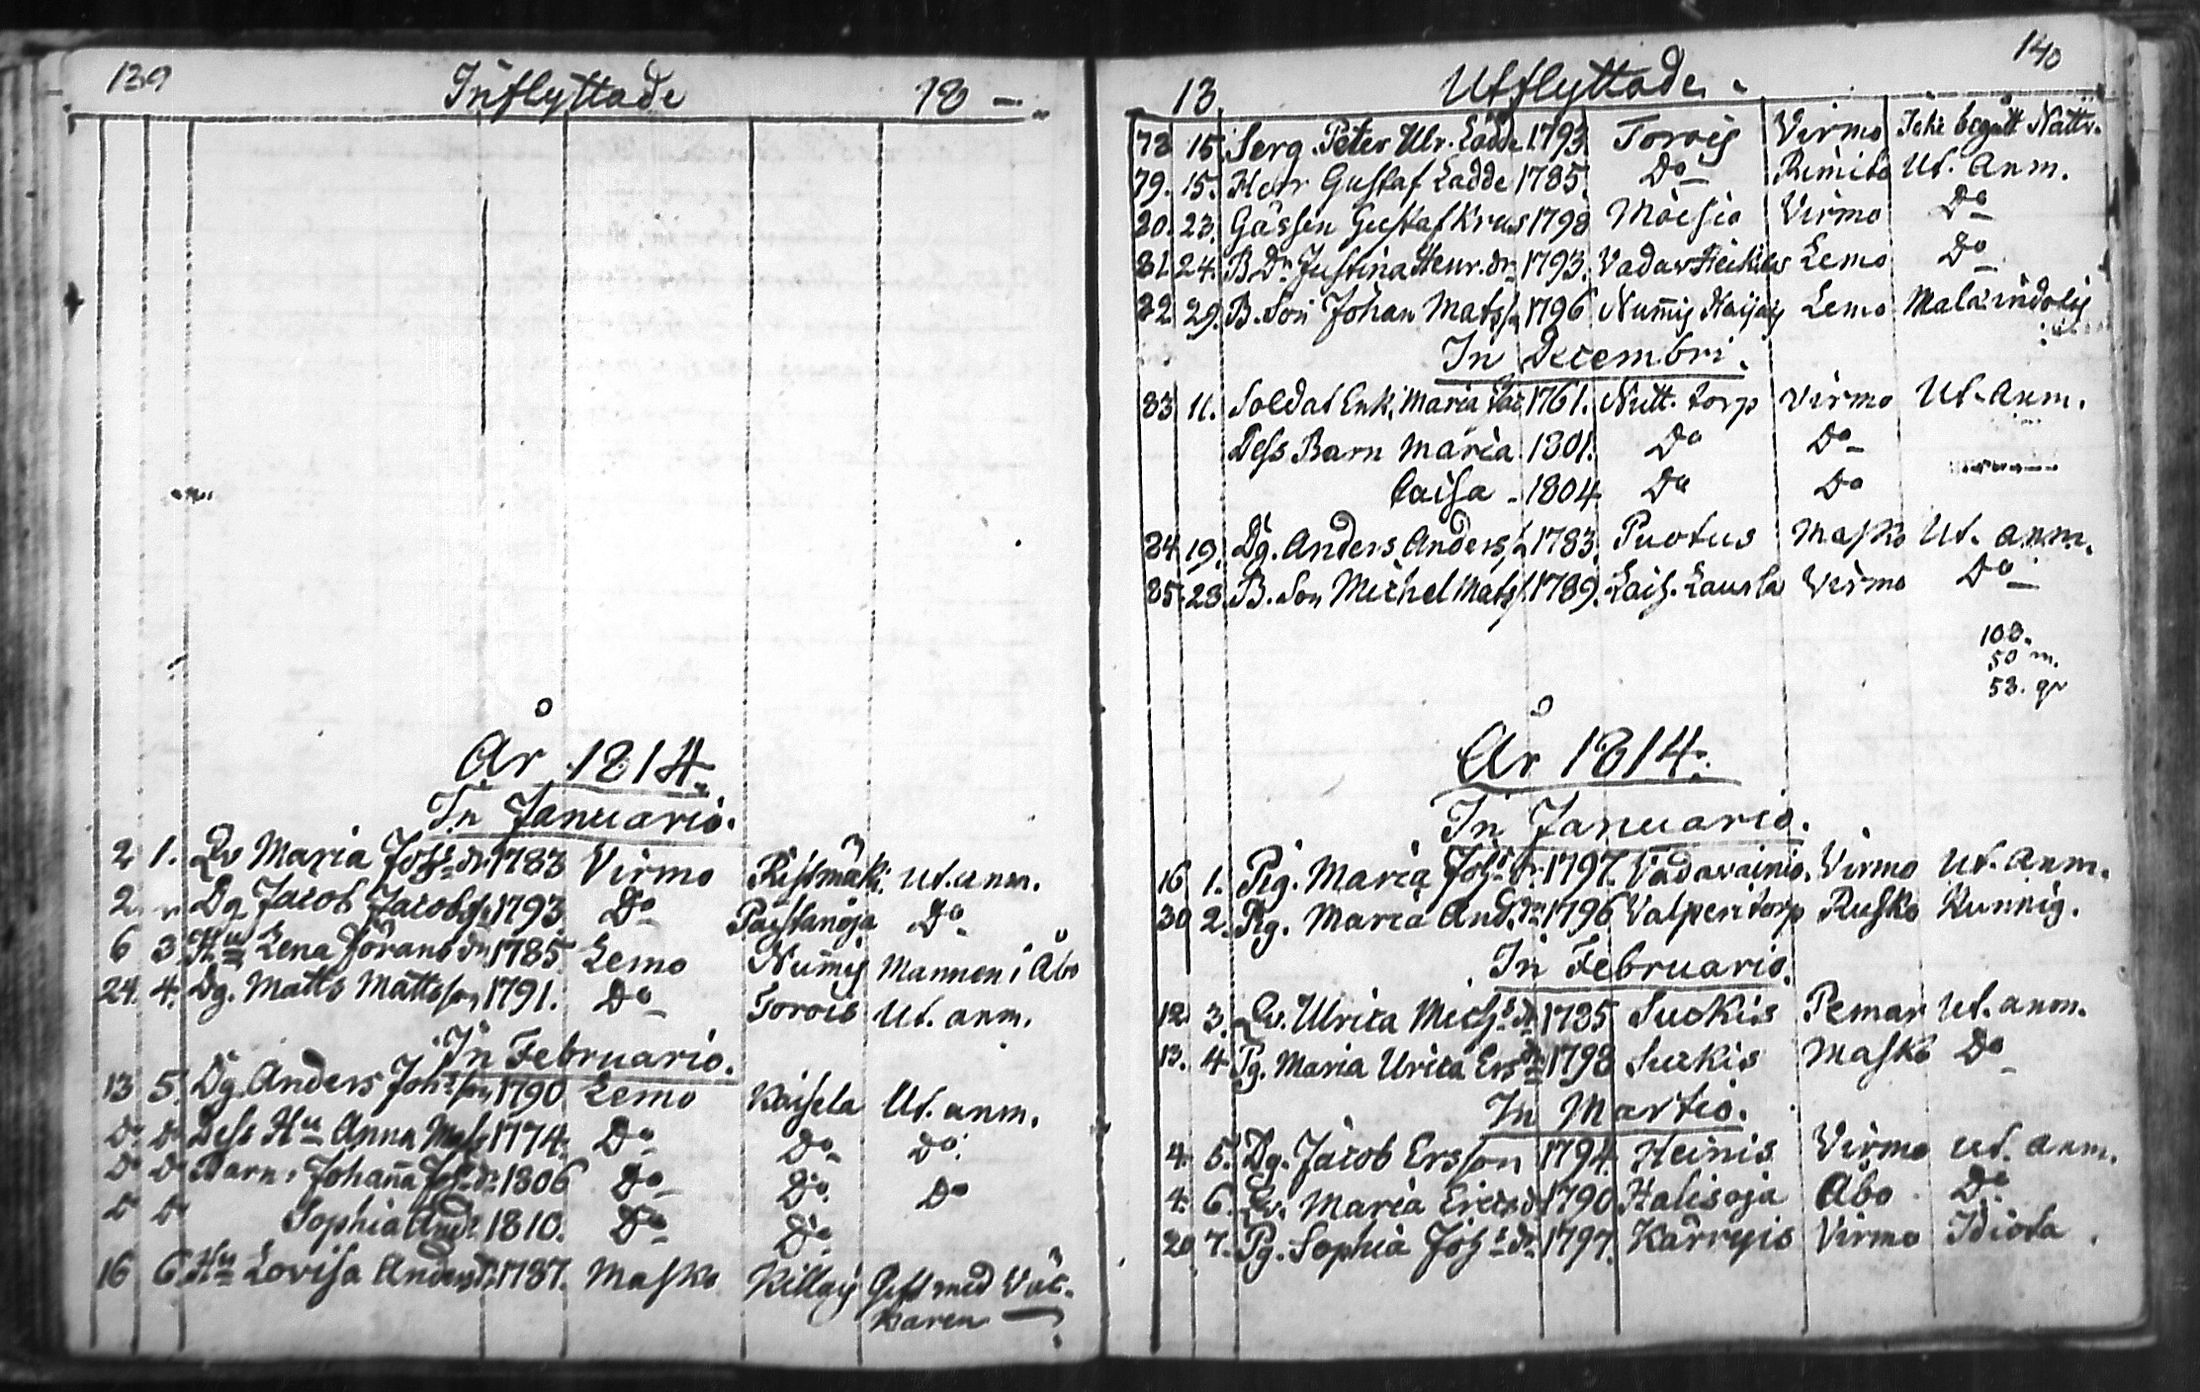 139 Inflyttade 18 –
År 1814.
In Januario.
2 1. Qv Maria Johs dr 1783 Virmo Ristmäki ut. anm.
2 Dg Jacob Jacobss 1793 Do Paistanoja Do
6 3. Hu Lena Jörans dr 1785 Lemo Num̄is Mannen i Åbo
24. 4. Dg. Matts Mattsson 1791. Do Torois Ut. anm.
In Februario.
13 5. Dg. Anders Johsson 1790 Lemo Kaisela Ut. anm.
Do Do Dess Hu Anna 1774. Do Do Do.
Do Do Barn, Johan̄a Johs dr 1806 Do Do Do
Do Do Sophia And. 1810. Do Do
16 6. Hu Lovisa Anders dr 1787. Masko Killais Gift med
karen
140
18 Utflyttade
78 15. Serg. Peter Ulr. Ladde 1793 Torois Virmo Icke begått Nattv.
79. 15. Herr Gustaf Ladde 1785. Do Rimito Ut. anm.
80. 23. Gossen Gustaf Krus 1798 Moisio Virmo Do
81. 24. B. Dr Justina Henr. dr 1793. Vadar Heikilä Lemo Do
82 29. B. Son Johan Matss 1796 Num̄is Lemo Mala indolis
In Decembri.
83 11. Soldat Enk. Maria 1761. Nutt. torp Virmo Ut. anm.
Dess Barn Maria 1801. Do Do
Caisa 1804 Do Do
84 19. Dg. Anders Anderss 1783. Puotus Masko Ut. anm.
85. 28. B. Son Michel Matss 1789. Lais. Lausla Virmo Do
103.
50 m.
53. qv
År 1814.
In Januario.
16 1. Pig. Maria Johs dr 1797. Vadavainio. Virmo Ut. anm.
30 2. Pig. Maria And. dr 1796 Valperi torp Rusko Kunnig.
In Februario.
12 3. Qv. Ulrica Michs dr 1785 Suckis Pemar Ut. anm.
13. 4. Pg. Maria Urica Ers dr 1798 Suckis Masko Do
In Martio.
4 5. Dg. Jacob Ersson 1794 Heinis Virmo ut. anm.
4. 6. Qv. Maria Erics dr 1790 Halisoja Åbo Do
20 7. Pg. Sophia Johs dr 1797. Karryis Virmo Idiota.